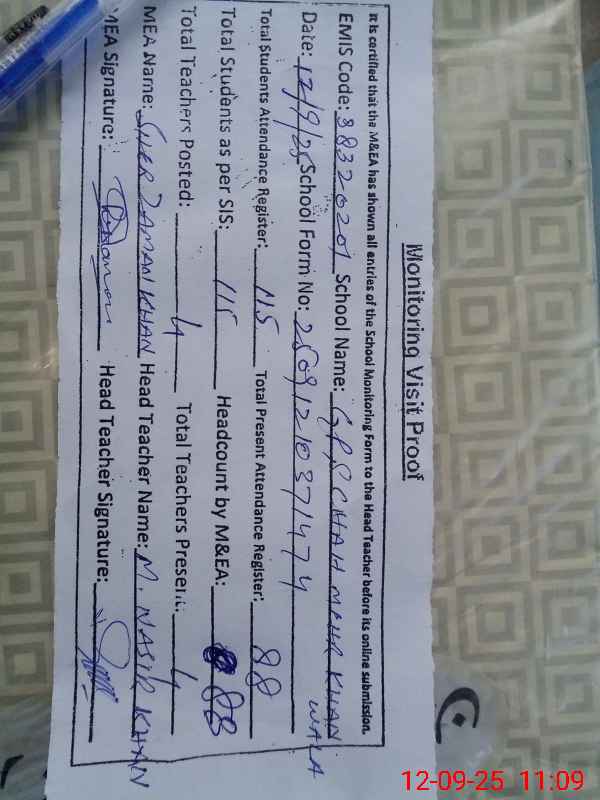 Monitoring Visit Proof
It is certified that the M&EA has shown all entries of the School Monitoring Form to the Head Teacher before its online submission.
EMIS Code: 38320201 School Name: GPS CHAH MEHR KHAN WALA
Date: 12/9/25 School Form No: 25091210371474
Total Students Attendance Register: 115 Total Present Attendance Register: 88
Total Students as per SIS: 115 Headcount by M&EA: 88
Total Teachers Posted: 4 Total Teachers Present: 4
MEA Name: SHER ZAMAN KHAN Head Teacher Name: M. NASIR KHAN
MEA Signature: Head Teacher Signature:
12-09-25 11:09